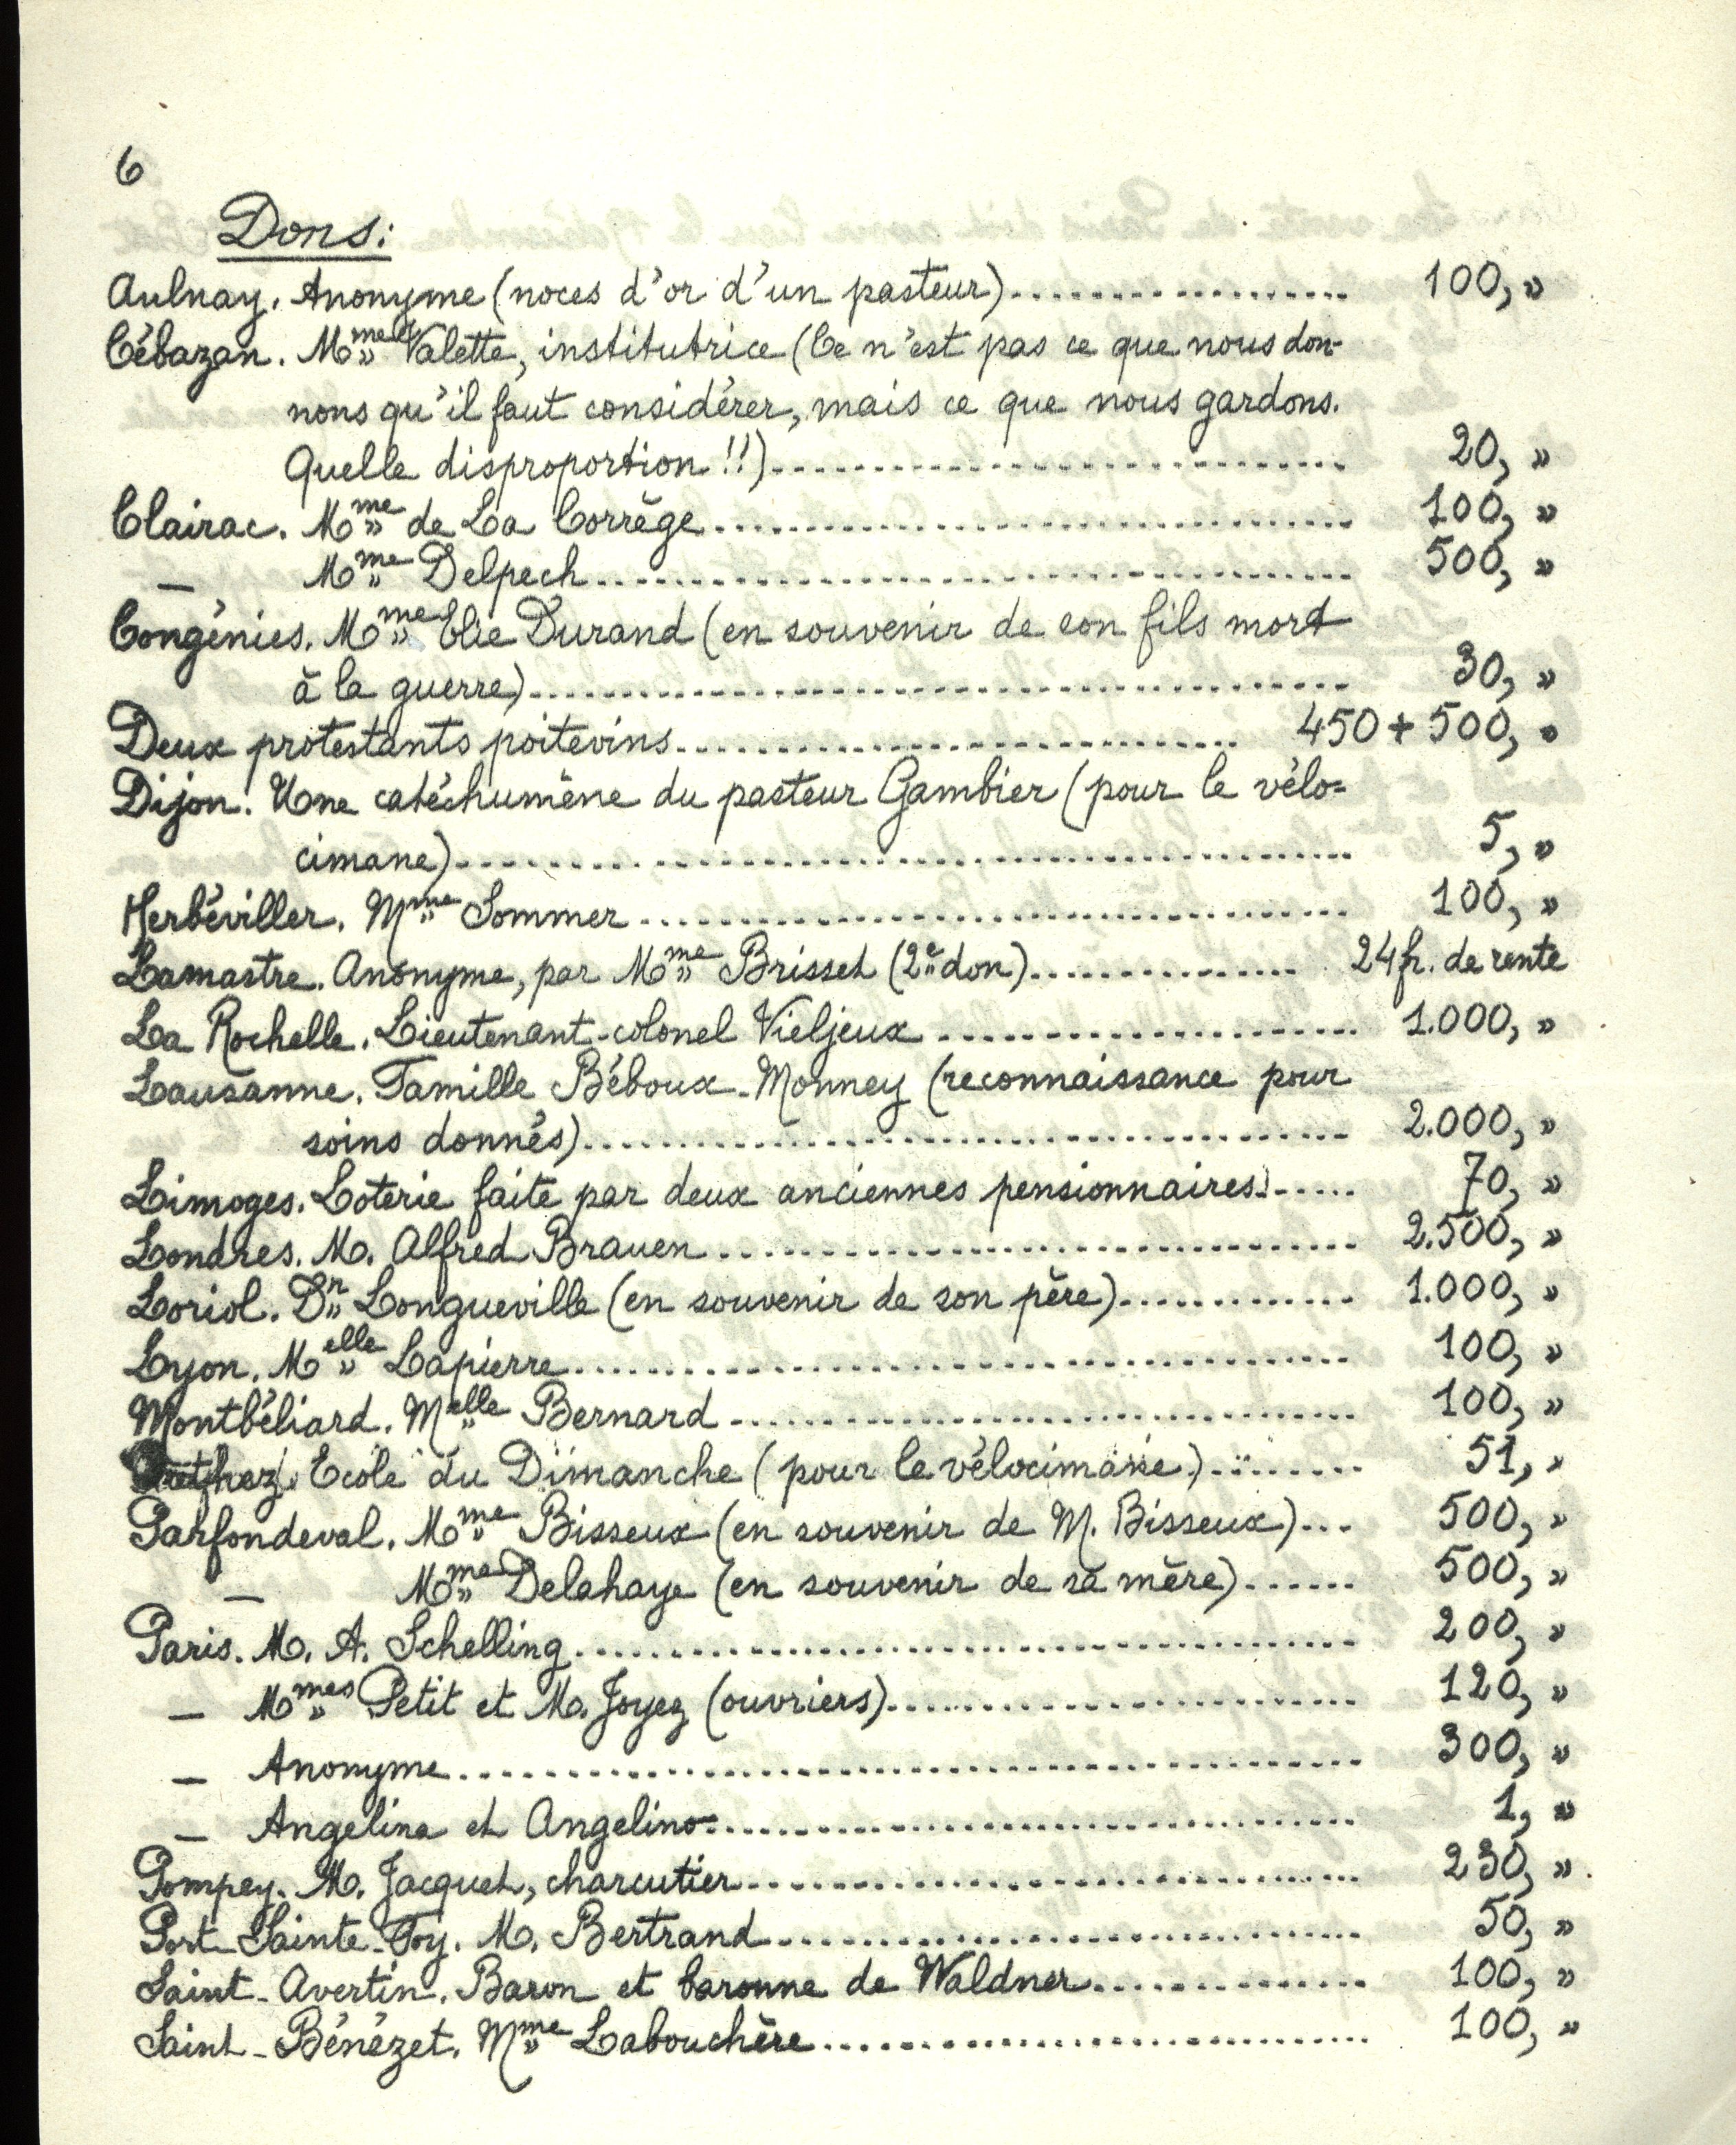 6
Dons:
Aulnay. Anonyme (noces d'or d'un pasteur).................... 100, »
Cébazan. Mme Valette, institutrice (Ce n'est pas ce que nous don-
nons qu'il faut considérer, mais ce que nous gardons.
Quelle disproportion !!).................... 20, »
Clairac. Mme de La Corrège.................... 100, »
— Mme Delpech.................... 500, »
Congénies. Mme Elie Durand (en souvenir de son fils mort
à la guerre).................... 30, »
Deux protestants poitevins.................... 450 + 500, »
Dijon. Une catéchumène du pasteur Gambier (pour le vélo=
cimane).................... 5, »
Herbéviller. Mme Sommer.................... 100, »
Lamastre. Anonyme, par Mme Brisset (2e don).................... 24 fr. de rente
La Rochelle. Lieutenant-colonel Vieljeux.................... 1.000, »
Lausanne. Famille Béboux-Monney (reconnaissance pour
soins donnés).................... 2.000, »
Limoges. Loterie faite par deux anciennes pensionnaires...... 70, »
Londres. M. Alfred Brauen.................... 2.500, »
Loriol. Dr Longueville (en souvenir de son père).................... 1.000, »
Lyon. Melle Lapierre.................... 100, »
Montbéliard. Melle Bernard.................... 100, »
Ecole du Dimanche (pour le vélocimane)........ 51, »
Parfondeval. Mme Bisseux (en souvenir de M. Bisseux)... 500, »
— Mme Delahaye (en souvenir de sa mère)...... 500, »
Paris. M. A. Schelling.................... 200, »
— Mmes Petit et M. Joyez (ouvriers).................... 120, »
— Anonyme.................... 300, »
— Angelina et Angelino.................... 1, »
Pompey. M. Jacquet, charcutier.................... 230, »
Port-Sainte-Foy. M. Bertrand.................... 50, »
Saint-Avertin. Baron et baronne de Waldner.............. 100, »
Saint-Bénézet. Mme Labouchère.................... 100, »